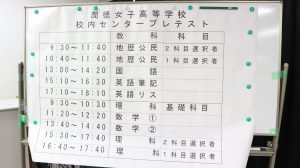 潤徳女子高等学校
校内センタープレテスト
教　科　科　目
9:30～11:40 地歴公民 2科目選択者
10:40～11:40 地歴公民 1科目選択者
13:00～14:20 国　語
15:10～16:30 英語筆記
17:10～18:10 英語リス
9:30～10:30 理　科 基礎科目
11:20～12:20 数　学 ①
13:20～14:20 数　学 ②
15:30～17:40 理　科 2科目選択者
16:40～17:40 理　科 1科目選択者